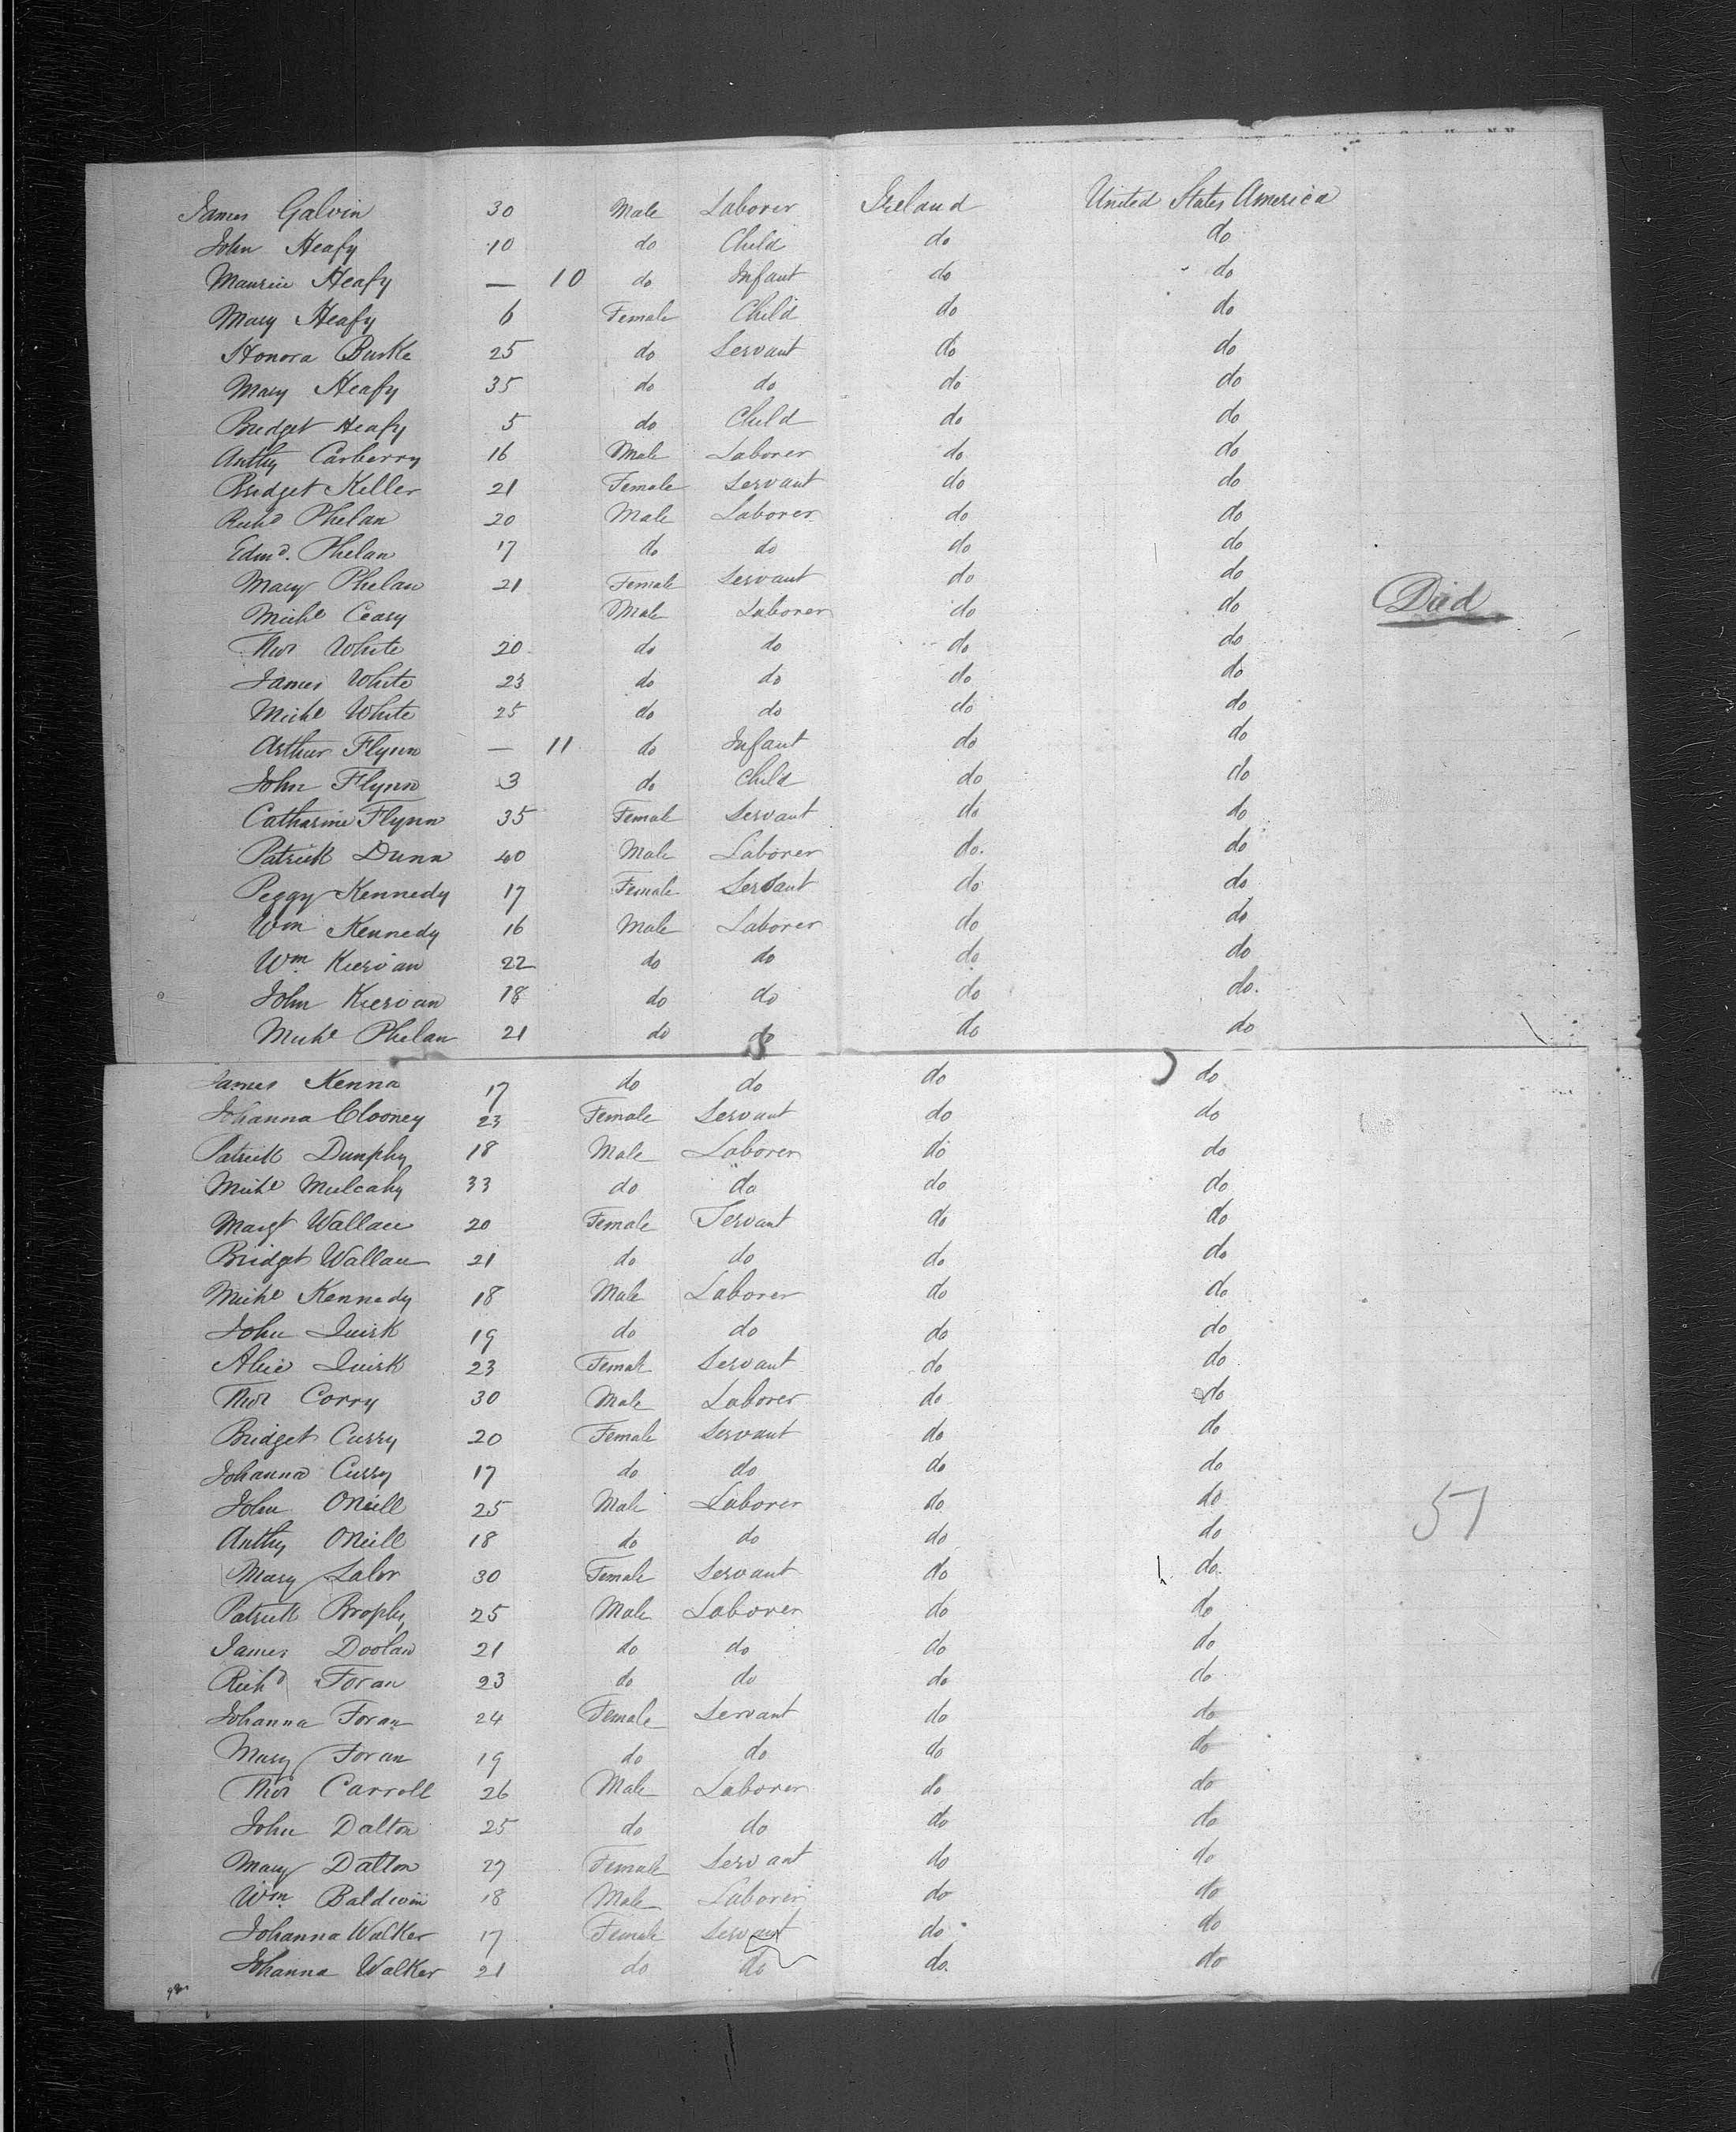 James Galvin 30 Male Laborer Ireland United States America
John Heafy 10 do Child do do
Maurice Heafy — 10 do Infant do do
Mary Heafy 6 Female Child do do
Honora Burke 25 do Servant do do
Mary Heafy 35 do do do do
Bridget Heafy 5 do Child do do
Anthy Carberry 16 Male Laborer do do
Bridget Keller 21 Female Servant do do
Richd Phelan 20 Male Laborer do do
Edmd. Phelan 17 do do do do
Mary Phelan 21 Female Servant do do
Michl Ceasy Male Laborer do do Died
Thos White 20 do do do do
James White 23 do do do do
Michl White 25 do do do do
Arthur Flynn — 11 do Infant do do
John Flynn 3 do Child do do
Catharine Flynn 35 Female Servant do do
Patrick Dunn 40 Male Laborer do. do
Peggy Kennedy 17 Female Servant do do
Wm Kennedy 16 Male Laborer do do
Wm. Kiervan 22 do do do do
John Kiervan 18 do do do do.
Michl Phelan 21 do do do do
James Kenna 17 do do do do
Johanna Clooney 23 Female Servant do do
Patrick Dunphy 18 Male Laborer do do
Michl Mulcahy 33 do do do do
Margt Wallace 20 Female Servant do do
Bridget Wallace 21 do do do do
Michl Kennedy 18 Male Laborer do do
John Quirk 19 do do do do
Alice Quirk 23 Female Servant do do
Thos Corry 30 Male Laborer do do
Bridget Curry 20 Female Servant do do
Johanna Curry 17 do do do do
John ONeill 25 Male Laborer do do 57
Anthy ONeill 18 do do do do
Mary Lalor 30 Female Servant do do.
Patrick Brophy 25 Male Laborer do do
James Doolan 21 do do do do
Richd Foran 23 do do do do
Johanna Foran 24 Female Servant do do
Mary Foran 19 do do do do
Thos Carroll 26 Male Laborer do do
John Dalton 25 do do do do
Mary Dalton 27 Female Servant do do
Wm. Baldwin 18 Male Laborer do do
Johanna Walker 17 Female Servant do do
Johanna Walker 21 do do do. do